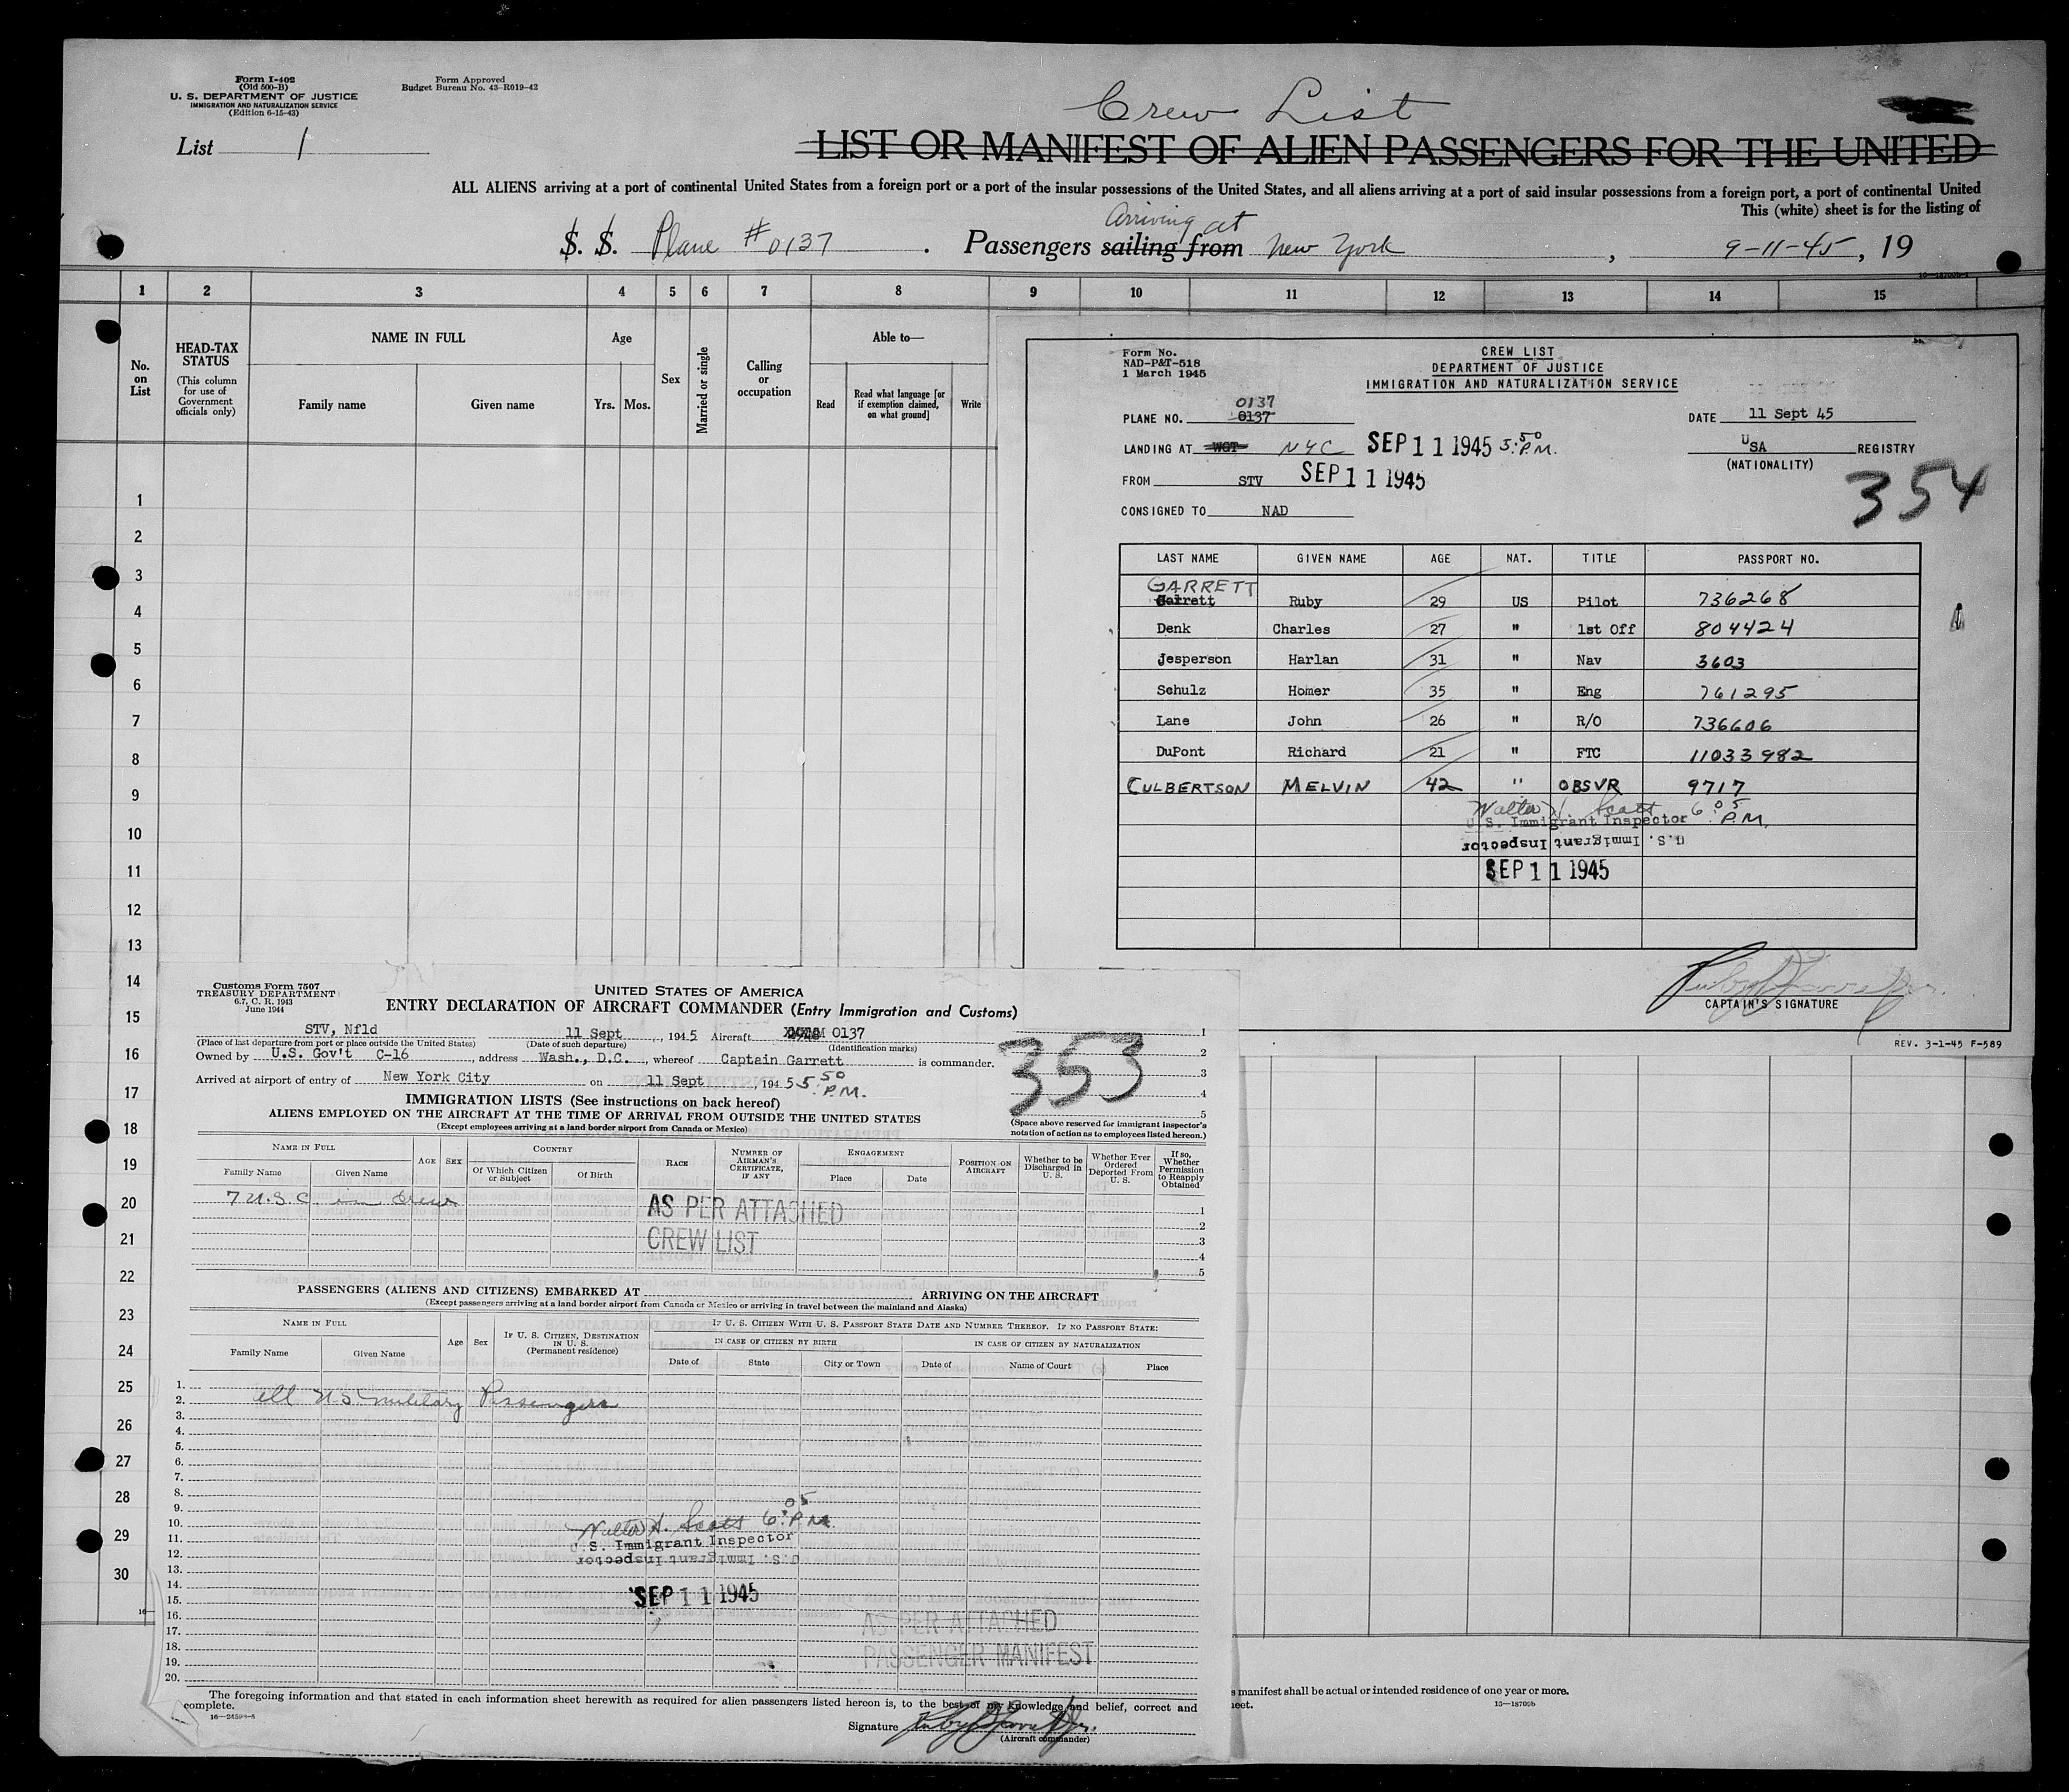 Form I-402
(Old 500-B)
U. S. DEPARTMENT OF JUSTICE
IMMIGRATION AND NATURALIZATION SERVICE
(Edition 6-15-43)
Form Approved
Budget Bureau No. 43-R019-42
List 1
Crew List
LIST OR MANIFEST OF ALIEN PASSENGERS FOR THE UNITED
ALL ALIENS arriving at a port of continental United States from a foreign port or a port of the insular possessions of the United States, and all aliens arriving at a port of said insular possessions from a foreign port, a port of continental United
This (white) sheet is for the listing of
Arriving at
S. S. Plane #0137 . Passengers sailing from New York , 9-11-45, 19
1 2 3 4 5 6 7 8 9 10 11 12 13 14 15
No. on List
HEAD-TAX STATUS
(This column for use of Government officials only)
NAME IN FULL
Family name
Given name
Age
Yrs. Mos.
Sex
Married or single
Calling or occupation
Able to—
Read
Read what language [or if exemption claimed, on what ground]
Write
1
2
3
4
5
6
7
8
9
10
11
12
13
14
15
16
17
18
19
20
21
22
23
24
25
26
27
28
29
30
Form No.
NAD-P&T-518
1 March 1945
CREW LIST
DEPARTMENT OF JUSTICE
IMMIGRATION AND NATURALIZATION SERVICE
0137
PLANE NO. 0137
DATE 11 Sept 45
LANDING AT WGT NYC SEP 11 1945 5:50 P.M.
USA REGISTRY
(NATIONALITY)
FROM STV SEP 11 1945
354
CONSIGNED TO NAD
LAST NAME GIVEN NAME AGE NAT. TITLE PASSPORT NO.
GARRETT
Garrett Ruby 29 US Pilot 736268
Denk Charles 27 " 1st Off 804424
Jesperson Harlan 31 " Nav 3603
Schulz Homer 35 " Eng 761295
Lane John 26 " R/O 736606
DuPont Richard 21 " FTC 11033982
CULBERTSON MELVIN 42 " OBSVR 9717
Walter H. Scatt 6:05 P.M.
U.S. Immigrant Inspector
U.S. Immigrant Inspector
SEP 11 1945
CAPTAIN'S SIGNATURE
REV. 3-1-45 F-589
Customs Form 7507
TREASURY DEPARTMENT
6.7, C. R. 1943
June 1944
UNITED STATES OF AMERICA
ENTRY DECLARATION OF AIRCRAFT COMMANDER (Entry Immigration and Customs)
STV, Nfld 11 Sept , 1945 Aircraft 0137
(Place of last departure from port or place outside the United States) (Date of such departure) (Identification marks)
Owned by U.S. Gov't C-16 , address Wash., D.C. , whereof Captain Garrett is commander.
Arrived at airport of entry of New York City on 11 Sept , 1945 5:50 P.M.
353
1
2
3
4
5
(Space above reserved for immigrant inspector's notation of action as to employees listed hereon.)
IMMIGRATION LISTS (See instructions on back hereof)
ALIENS EMPLOYED ON THE AIRCRAFT AT THE TIME OF ARRIVAL FROM OUTSIDE THE UNITED STATES
(Except employees arriving at a land border airport from Canada or Mexico)
NAME IN FULL
Family Name
Given Name
AGE
SEX
COUNTRY
Of Which Citizen or Subject
Of Birth
RACE
NUMBER OF AIRMAN'S CERTIFICATE, IF ANY
ENGAGEMENT
Place
Date
POSITION ON AIRCRAFT
Whether to be Discharged in U. S.
Whether Ever Ordered Deported From U. S.
If so, Whether Permission to Reapply Obtained
7 U.S.C in Crew
AS PER ATTACHED
CREW LIST
1
2
3
4
5
PASSENGERS (ALIENS AND CITIZENS) EMBARKED AT ARRIVING ON THE AIRCRAFT
(Except passengers arriving at a land border airport from Canada or Mexico or arriving in travel between the mainland and Alaska)
NAME IN FULL
Family Name
Given Name
Age
Sex
IF U. S. CITIZEN, DESTINATION IN U. S.
(Permanent residence)
IF U. S. CITIZEN WITH U. S. PASSPORT STATE DATE AND NUMBER THEREOF. IF NO PASSPORT STATE:
IN CASE OF CITIZEN BY BIRTH
IN CASE OF CITIZEN BY NATURALIZATION
Date of
State
City or Town
Date of
Name of Court
Place
1.
2. all US military Passengers
3.
4.
5.
6.
7.
8.
9.
10.
11.
12.
13.
14.
15.
16.
17.
18.
19.
20.
Walter H. Scatt 6:05 P.M.
U.S. Immigrant Inspector
U.S. Immigrant Inspector
SEP 11 1945
AS PER ATTACHED
PASSENGER MANIFEST
The foregoing information and that stated in each information sheet herewith as required for alien passengers listed hereon is, to the best of my knowledge and belief, correct and
complete.
16—24598-5
Signature
(Aircraft commander)
manifest shall be actual or intended residence of one year or more.
15—18700b